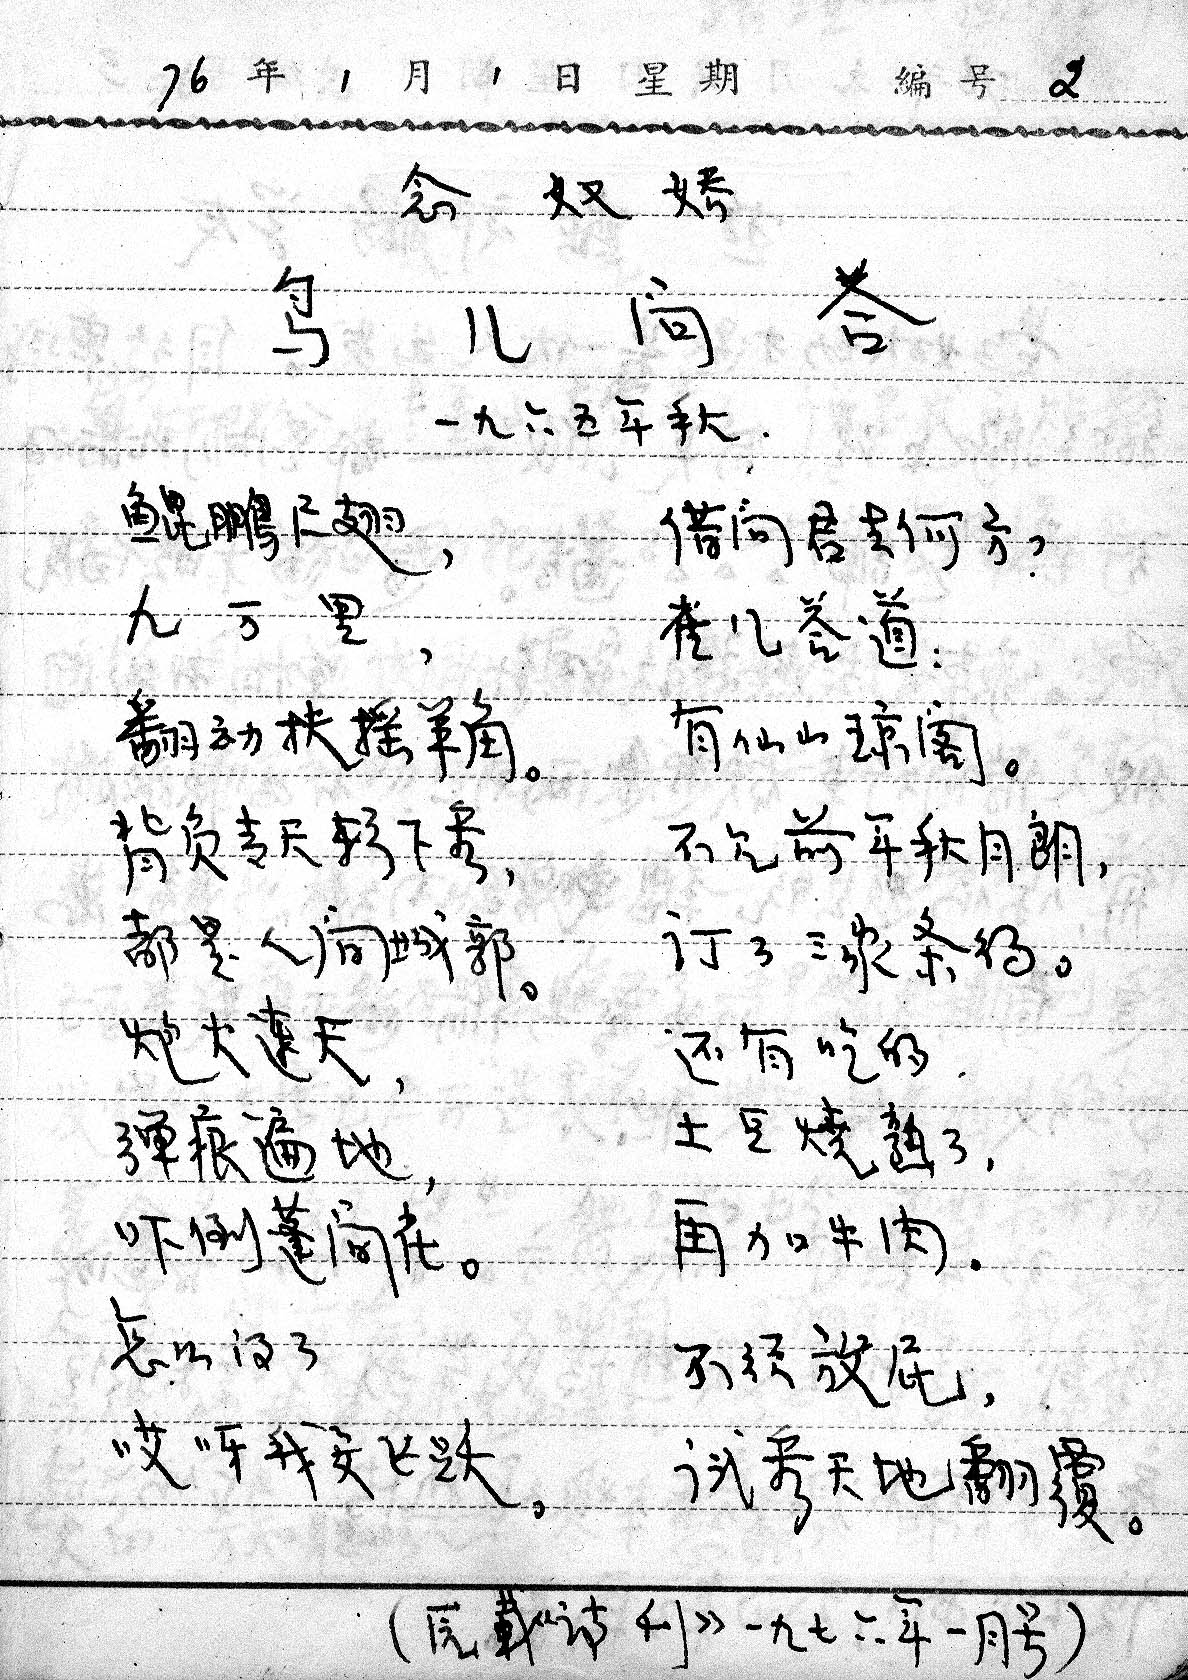 76年1月1日星期 編号 2
念奴娇
鸟儿问答
一九六五年秋.
鲲鹏展翅，
九万里，
翻动扶摇羊角。
背负青天朝下看，
都是人间城郭。
炮火连天，
弹痕遍地，
吓倒蓬间雀。
怎么得了
哎呀我要飞跃。
借问君去何方？
雀儿答道：
有仙山琼阁。
不见前年秋月朗，
订了三家条约。
还有吃的.
土豆烧熟了，
再加牛肉.
不须放屁，
试看天地翻覆。
（原载《诗刊》一九七六年一月号）